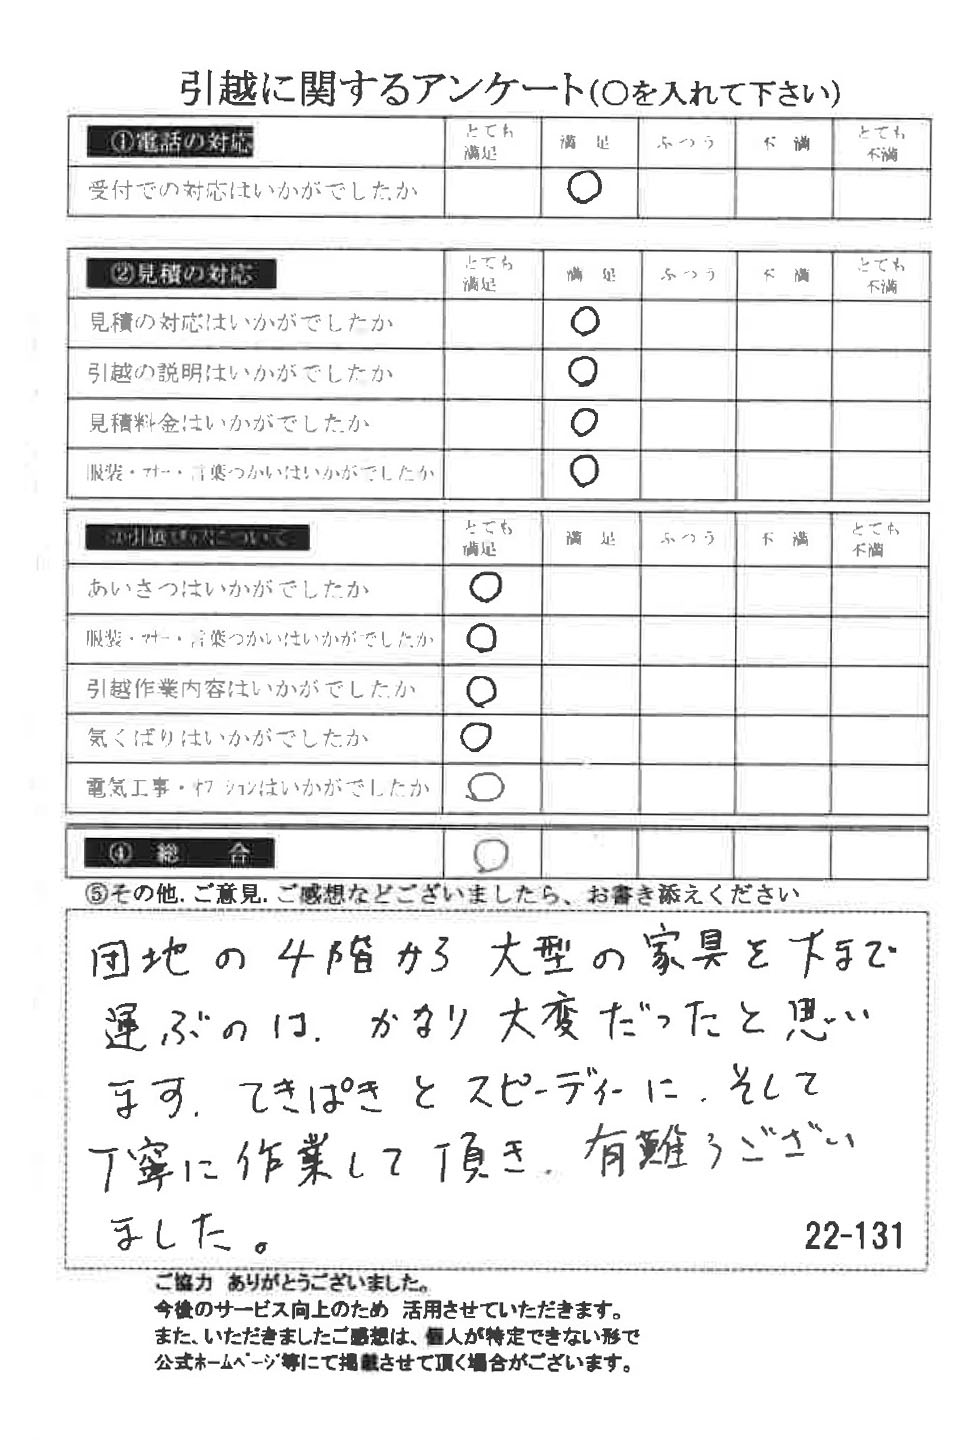 引越に関するアンケート(○を入れて下さい)
①電話の対応 とても満足 満足 ふつう 不満 とても不満
受付での対応はいかがでしたか ○
②見積の対応 とても満足 満足 ふつう 不満 とても不満
見積の対応はいかがでしたか ○
引越の説明はいかがでしたか ○
見積料金はいかがでしたか ○
服装・マナー・言葉つかいはいかがでしたか ○
について とても満足 満足 ふつう 不満 とても不満
あいさつはいかがでしたか ○
服装・マナー・言葉つかいはいかがでしたか ○
引越作業内容はいかがでしたか ○
気くばりはいかがでしたか ○
電気工事・オプションはいかがでしたか ○
④ 総 合 ○
⑤その他.ご意見.ご感想などございましたら、お書き添えください
団地の4階から大型の家具を下まで
運ぶのは、かなり大変だったと思い
ます。てきぱきとスピーディーに、そして
丁寧に作業して頂き、有難うござい
ました。
22-131
ご協力 ありがとうございました。
今後のサービス向上のため 活用させていただきます。
また、いただきましたご感想は、個人が特定できない形で
公式ホームページ等にて掲載させて頂く場合がございます。